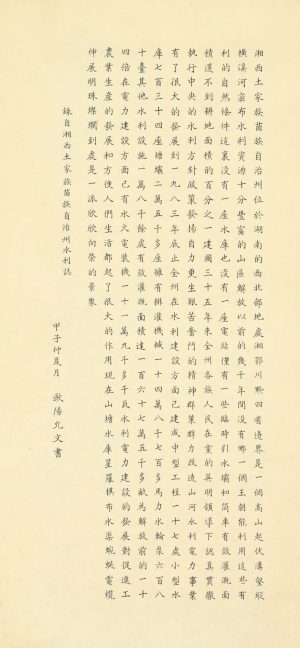 湘西土家族苗族自治州位於湖南的西北部地處湘鄂川黔四省邊界是一個高山起伏溝壑縱
橫溪河密布水利資源十分豐富的山區解放以前的幾千年間沒有哪一個王朝能利用這些有
利的自然條件這裏沒有一座水庫也沒有一座電站僅有一些臨時引水壩和筒車有效灌溉面
積還不到耕地面積的百分之一建國三十五年來全州各族人民在黨的英明領導下認真貫徹
執行中央的水利方針政策發揚自力更生艱苦奮鬥的精神群策群力改造山河水利電力事業
有了很大的發展到一九八三年底止全州在水利建設方面已建成中型工程一十七處小型水
庫七百三十四座塘壩二萬五千多座擁有排灌機械一十四萬八千七百多馬力水輪泵六百八
十臺其他水利設施一萬八千餘處有效灌溉面積達一百六十七萬五千多畝為解放前的一十
四倍在電力建設方面已有水火電裝機一十一萬九千多千瓦水利電力建設的發展對促進工
農業生產的發展和方便人們生活都起了很大的作用現在山塘水庫星羅棋布水渠蜿蜒電纜
伸展明珠燦爛到處是一派欣欣向榮的景象
錄自湘西土家族苗族自治州水利誌
甲子仲夏月 歐陽允文書